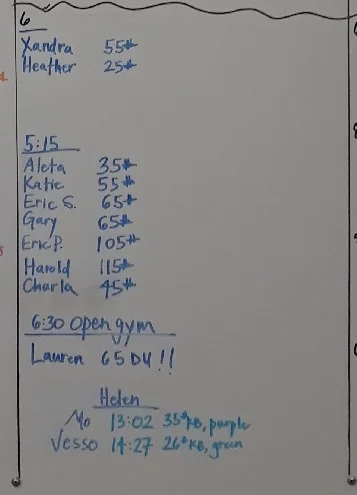 6
Xandra 55#
Heather 25#
5:15
Aleta 35#
Katie 55#
Eric S. 65#
Gary 65#
Eric P. 105#
Harold 115#
Charla 45#
6:30 Open gym
Lauren 65 DU!!
Helen
Mo 13:02 35# KB, purple
Jesso 14:27 26# KB, green